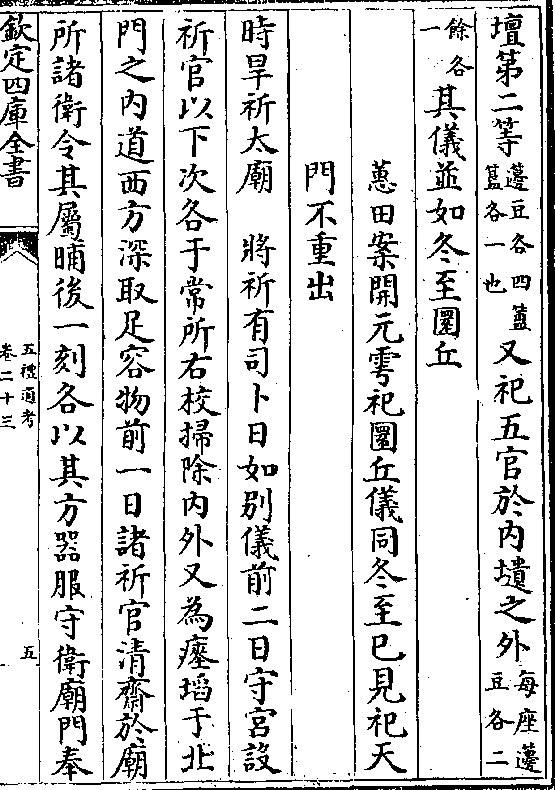 壇第二等籩豆各四簠簋各一也又祀五官於內壝之外每座籩豆各二
餘各一其儀並如冬至圜丘
蕙田案開元雩祀圜丘儀同冬至已見祀天
門不重出
時旱祈太廟　將祈有司卜日如別儀前二日守宮設
祈官以下次各于常所右校掃除內外又為瘞埳于北
門之內道西方深取足容物前一日諸祈官清齋於廟
所諸衛令其屬晡後一刻各以其方器服守衛廟門奉
欽定四庫全書
五禮通考
卷二十三
五